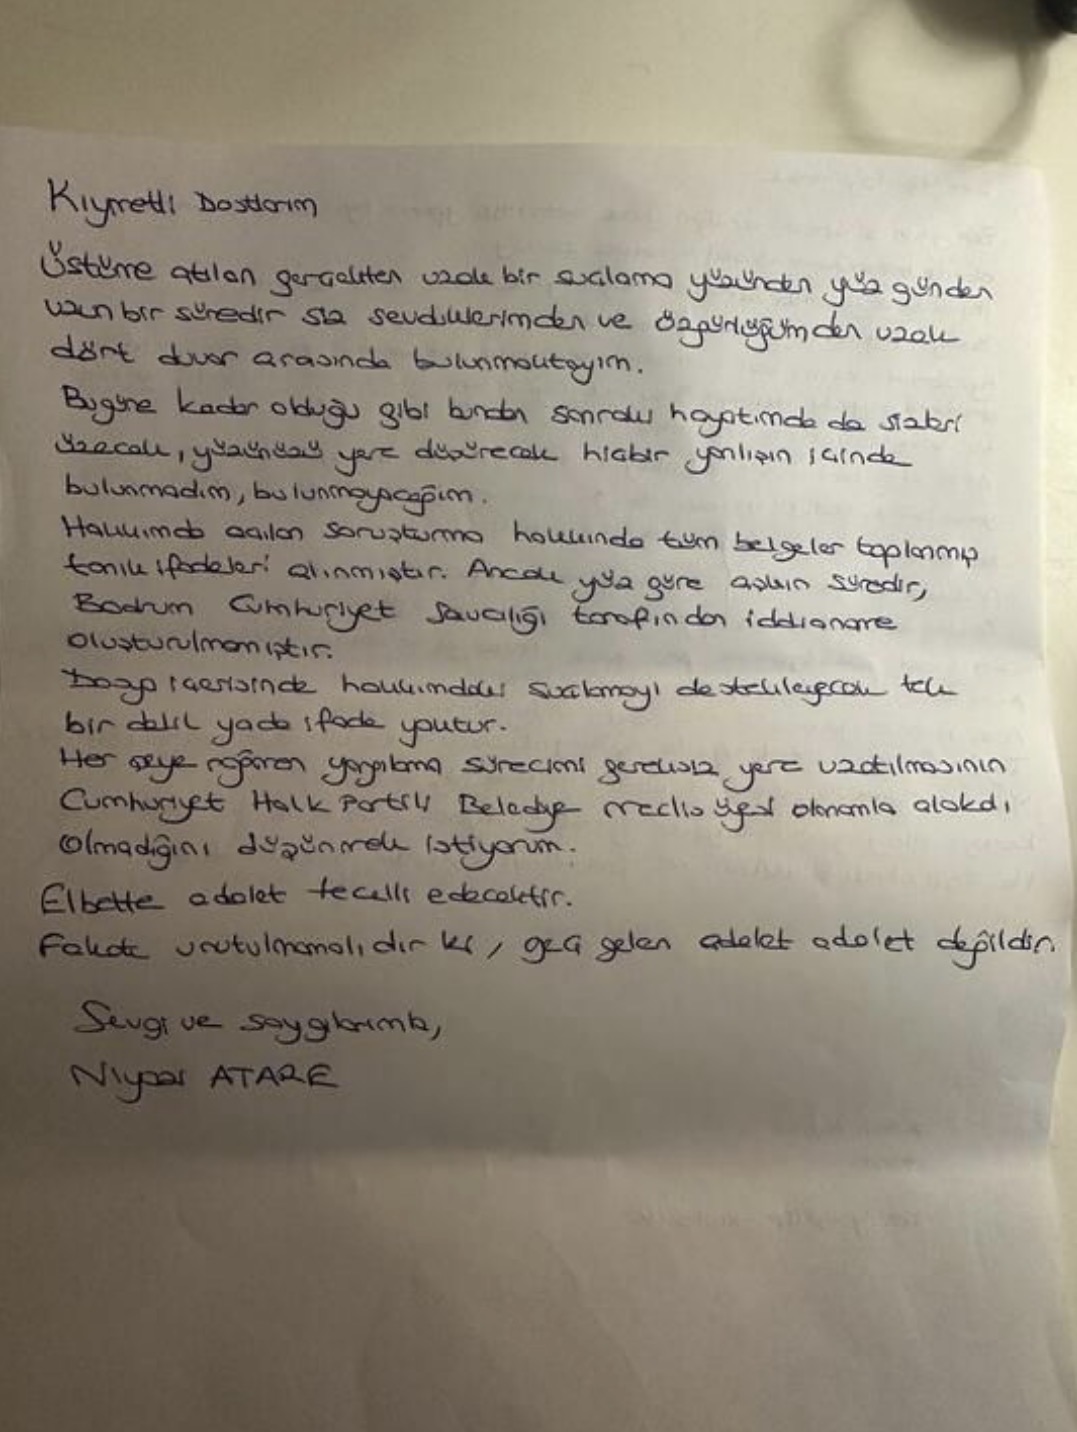 Kıymetli Dostlarım
Üstüme atılan gerçekten uzak bir suçlama yüzünden yüz günden
uzun bir süredir siz sevdiklerimden ve özgürlüğümden uzak
dört duvar arasında bulunmaktayım.
Bugüne kadar olduğu gibi bundan sonraki hayatımda da sizleri
üzecek, yüzünüzü yere düşürecek hiçbir yanlışın içinde
bulunmadım, bulunmayacağım.
Hakkımda açılan soruşturma hakkında tüm belgeler toplanmış
tanık ifadeleri alınmıştır. Ancak yüz güne aşkın süredir,
Bodrum Cumhuriyet Savcılığı tarafından iddianame
oluşturulmamıştır.
Dosya içerisinde hakkımdaki suçlamayı destekleyecek tek
bir delil yada ifade yoktur.
Her şeye rağmen yargılama sürecimi gereksiz yere uzatılmasının
Cumhuriyet Halk Partili Belediye meclis üyesi olmamla alakalı
olmadığını düşünmek istiyorum.
Elbette adalet tecelli edecektir.
Fakat unutulmamalıdır ki, geç gelen adalet adalet değildir.
Sevgi ve saygılarımla,
Niyazi ATARE